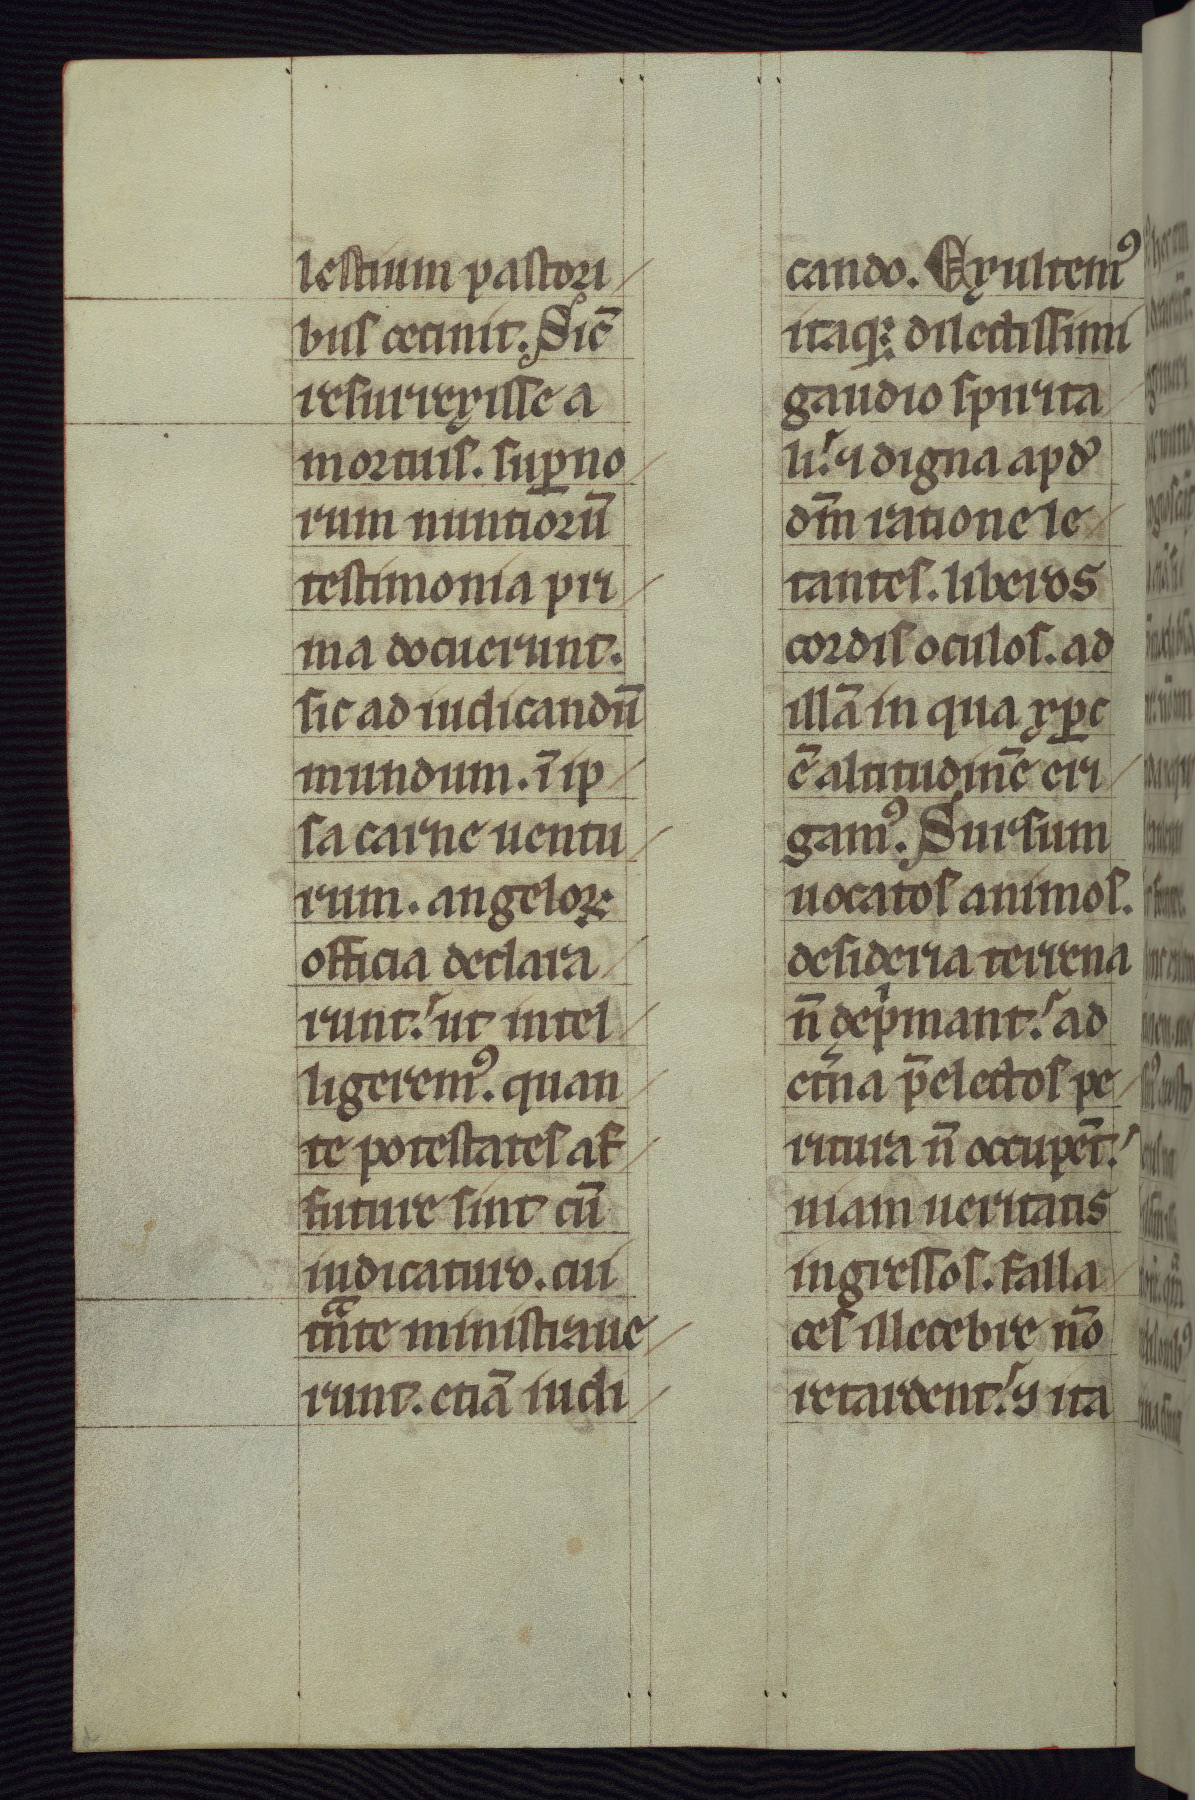 lestium pastori
bus cecinit. Sic̄
resurrexisse a
mortuis. suꝑno
rum nuntiorū
testimonia pri
ma docuerunt.
sic ad iudicandū
mundum. ī ip
sa carne uentu
rum. angeloꝝ
officia declara
runt. ut intel
ligeremꝰ. quan
te potestates af
future sint cū
iudicaturo. cui
tante ministraue
runt. etiā iudi
cando. Exultemꝰ
itaqꝫ dilectissimi
gaudio spirita
li. ⁊ digna apd̾
dm̄ ratione le
tantes. liberos
cordis oculos. ad
illā in qua xp̄c
ē altitudinē eri
gamꝰ. Sursum
uocatos animos.
desideria terrena
n̄ dep̍mant. ad
et̾na p̄electos pe
ritura n̄ occupēt.
uiam ueritatis
ingressos. falla
ces illecebre nō
retardent. ⁊ ita